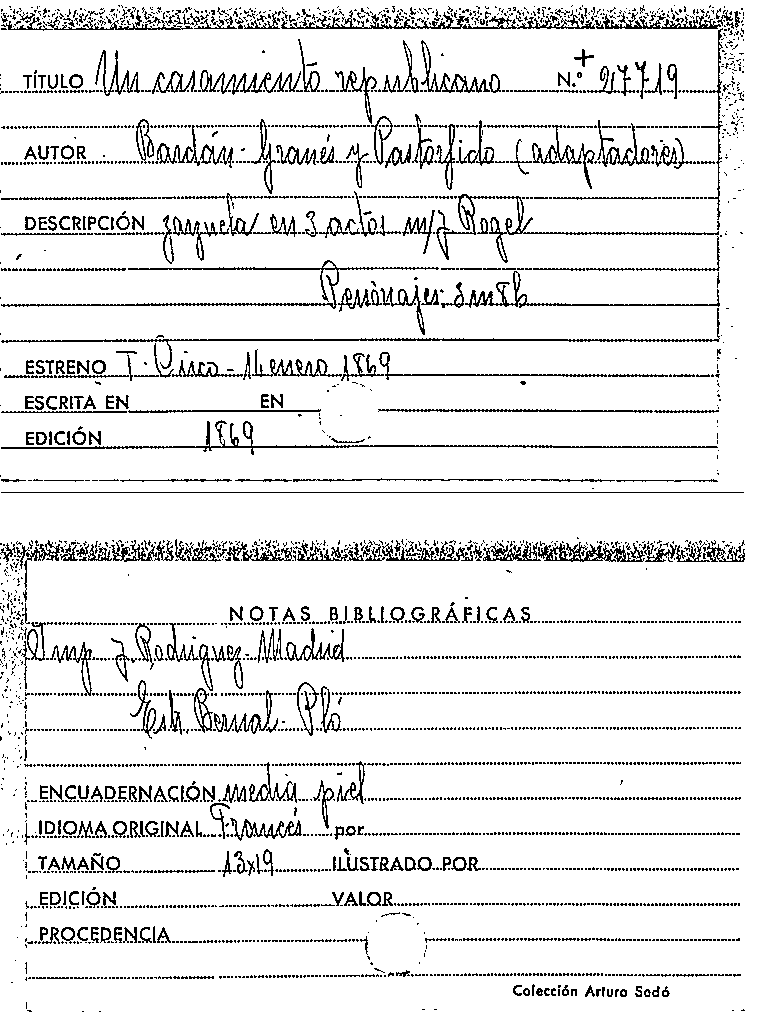 TÍTULO Un casamiento republicano N.º + 27719
AUTOR Bardán - Granés y Pastorfido (adaptadores)
DESCRIPCIÓN zarzuela en 3 actos m/J Rogel
Personajes: 3 m 8 h
ESTRENO T. Circo - 16 enero 1869
ESCRITA EN EN
EDICIÓN 1869
NOTAS BIBLIOGRÁFICAS
Imp J. Rodriguez - Madrid
Estr Bernal - Pló
ENCUADERNACIÓN media piel
IDIOMA ORIGINAL Francés por
TAMAÑO 13x19 ILUSTRADO POR
EDICIÓN VALOR
PROCEDENCIA
Colección Arturo Sedó